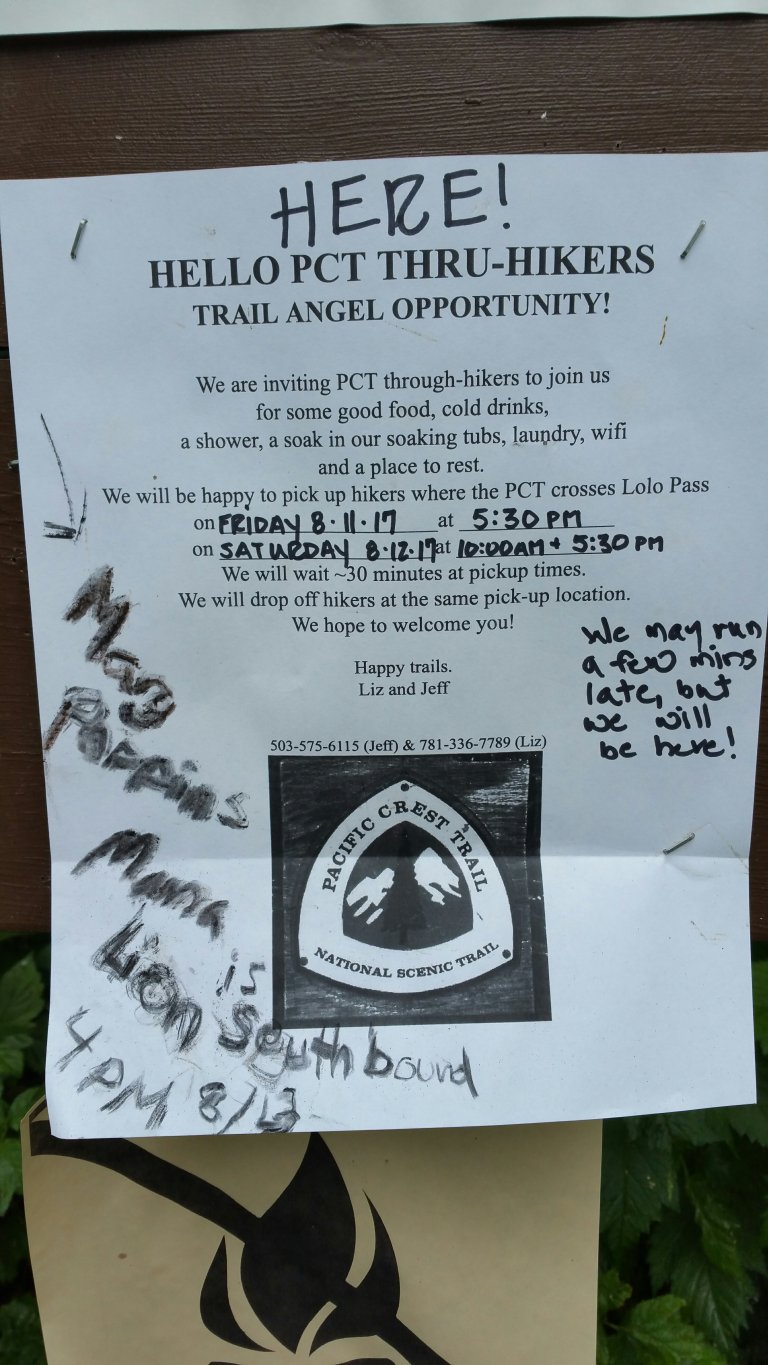 HERE!
HELLO PCT THRU-HIKERS
TRAIL ANGEL OPPORTUNITY!
We are inviting PCT through-hikers to join us
for some good food, cold drinks,
a shower, a soak in our soaking tubs, laundry, wifi
and a place to rest.
We will be happy to pick up hikers where the PCT crosses Lolo Pass
on FRIDAY 8·11·17 at 5:30 PM
on SATURDAY 8·12·17 at 10:00AM + 5:30 PM
We will wait ~30 minutes at pickup times.
We will drop off hikers at the same pick-up location.
We hope to welcome you!
Happy trails.
Liz and Jeff
We may run
a few mins
late, but
we will
be here!
503-575-6115 (Jeff) & 781-336-7789 (Liz)
PACIFIC CREST TRAIL
NATIONAL SCENIC TRAIL
Mary
Poppins
Mama
Lion is
Southbound
4 PM 8/13